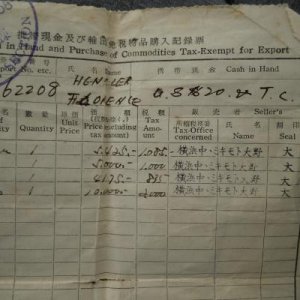 帯現金及び輸出免税物品購入記録票
in Hand and Purchase of Commodities Tax-Exempt for Export
No. etc. 氏名 Name 携帯現金 Cash in Hand
62208 HENSLER
FLORENCE U S $ 20.00 T.C.
数量 Quantity 単価 Unit Price Price (excluding tax amount) 税額 Tax Amount 販売者 Seller's
所轄税務署 Tax-Office concerned 氏名 Name 印 Seal
1 5.425.- 1.085.- 横浜中 ミキモト大野 大
1 5.000.- 1,000 横浜中 ミキモト大野 大
1 4175.- 835 横浜中 ミキモト大野 大
1 10,000.- 2,000 横浜中 ミキモト大野 大